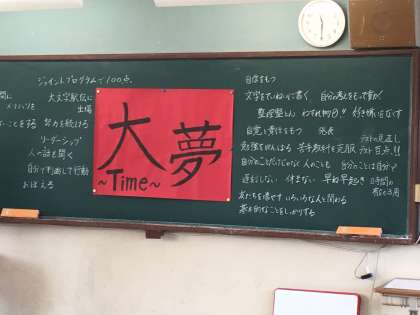 ジョイントプログラムで100点
大文字駅伝に
出場
努力を続ける
リーダーシップ
人の話を聞く
自分で判断して行動
おぼえる
大夢
~Time~
自信をもつ
文字をていねいに書く 自分の考えをもって動く
整理整とん わすれ物0!! 好き嫌いをなくす
自覚と責任をもつ 発表
テストの見直し
勉強をがんばる 苦手教科を克服 テスト百点!!
自分のことだけじゃなく人のことも 自分のことは自分で
遅刻しない 休まない 早ね早起き
友だちを増やす いろいろな人と関わる
基本的なことをしっかりする